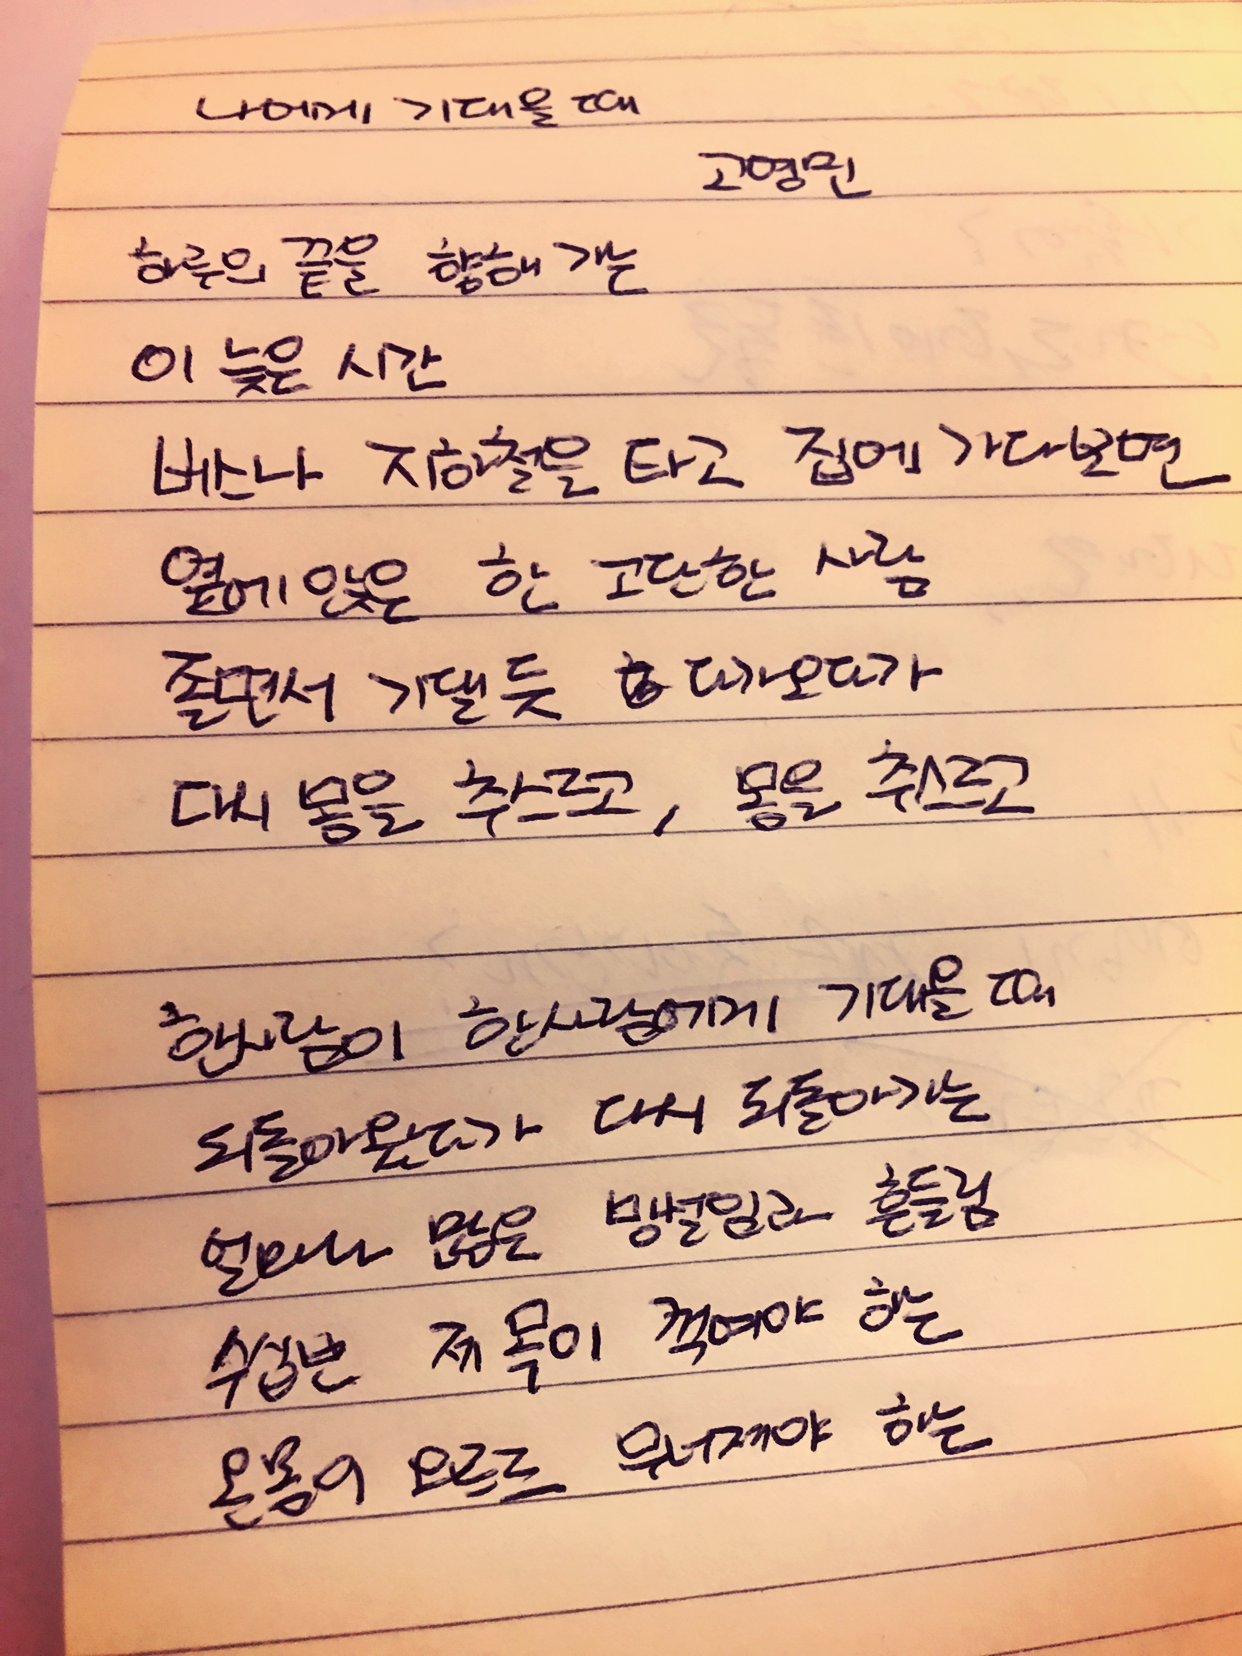 나에게 기대올 때
고영민
하루의 끝을 향해 가는
이 늦은 시간
버스나 지하철을 타고 집에 가다보면
옆에 앉은 한 고단한 사람
졸면서 기댈 듯 다가오다가
다시 몸을 추스르고, 몸을 추스르고
한사람이 한사람에게 기대올 때
되돌아왔다가 다시 되돌아가는
얼마나 많은 망설임과 흔들림
수십번 제 목이 꺾여야 하는
온몸이 와르르 무너져야 하는